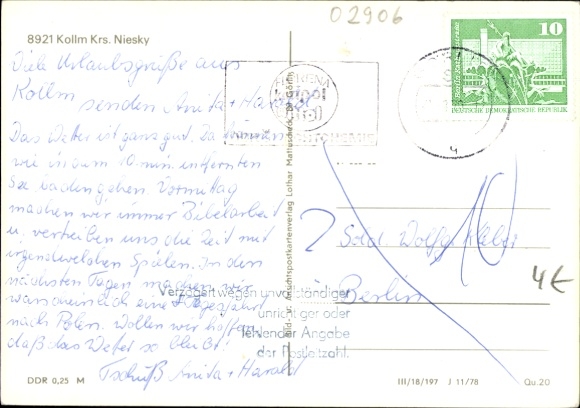 02906
8921 Kollm Krs. Niesky
Viele Urlaubsgrüße aus
Kollm
senden Anita + Harald
Das Wetter ist ganz gut. Da können
wir in zum 10 min entfernten
See baden gehen. Vormittag
machen wir immer Bibelarbeit
u. vertreiben uns die Zeit mit
irgendwelchen Spielen. In den
nächsten Tagen machen wir
warscheinlich eine Tagesfahrt
nach Polen. Wollen wir hoffen
daß das Wetter so bleibt!
Tschüß Anita + Harald
DDR 0,25 M
Bild- u. Ansichtspostkartenverlag Lothar Mattuscheck, DDR-
10
DEUTSCHE DEMOKRATISCHE REPUBLIK
Berlin
Verzögert wegen unvollständiger
unrichtiger oder
fehlender Angabe
der Postleitzahl.
4€
III/18/197 J 11/78
Qu.20